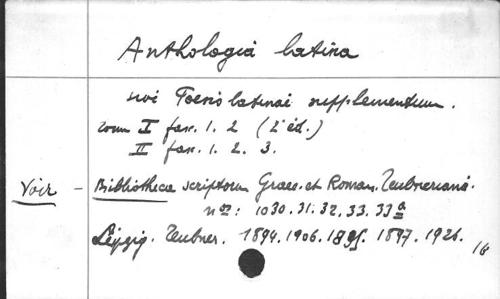 Anthologia latina
sive Poesis latinae supplementum.
tom I fasc. 1. 2 (2e éd.)
II fasc. 1. 2. 3.
Voir - Bibliotheca scriptorum Graec. et Roman. Teubneriana.
nos: 1030. 31. 32. 33. 33a
Leipzig. Teubner. 1894. 1906. 1895. 1897. 1926.
16